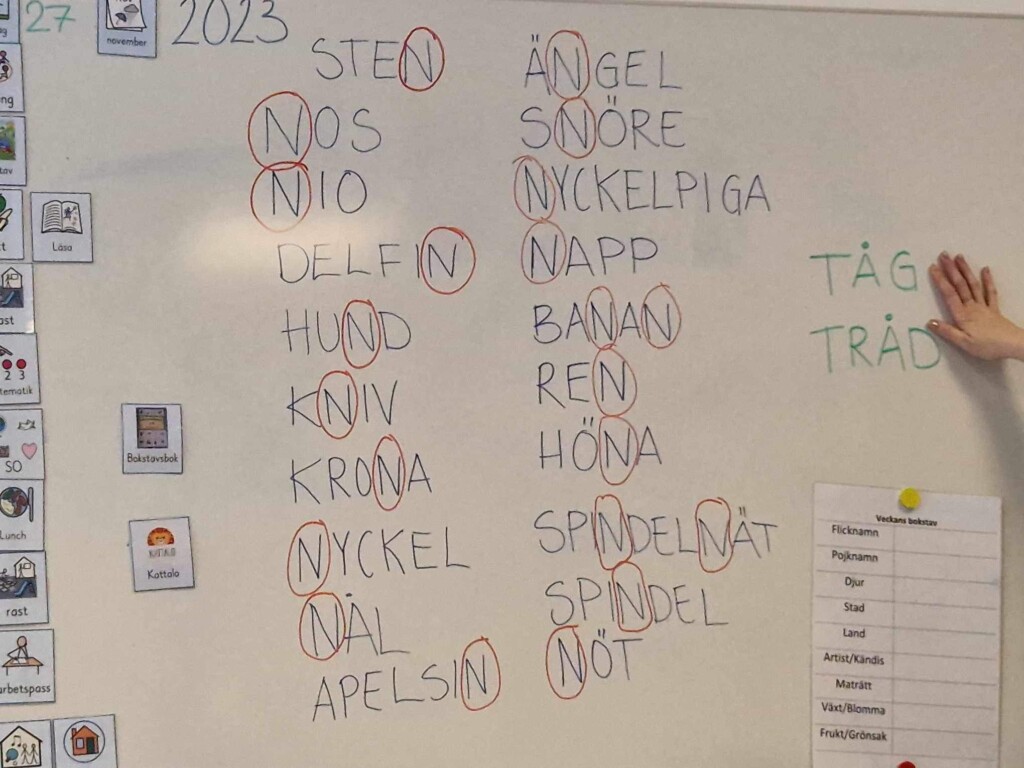 27
november
2023
STEN
NOS
NIO
DELFIN
HUND
KNIV
KRONA
NYCKEL
NÅL
APELSIN
ÄNGEL
SNÖRE
NYCKELPIGA
NAPP
BANAN
REN
HÖNA
SPINDELNÄT
SPINDEL
NÖT
TÅG
TRÅD
Läsa
2 3
SO
Lunch
rast
arbetspass
Bokstavsbok
KATTALO
Kattalo
Veckans bokstav
Flicknamn
Pojknamn
Djur
Stad
Land
Artist/Kändis
Maträtt
Växt/Blomma
Frukt/Grönsak